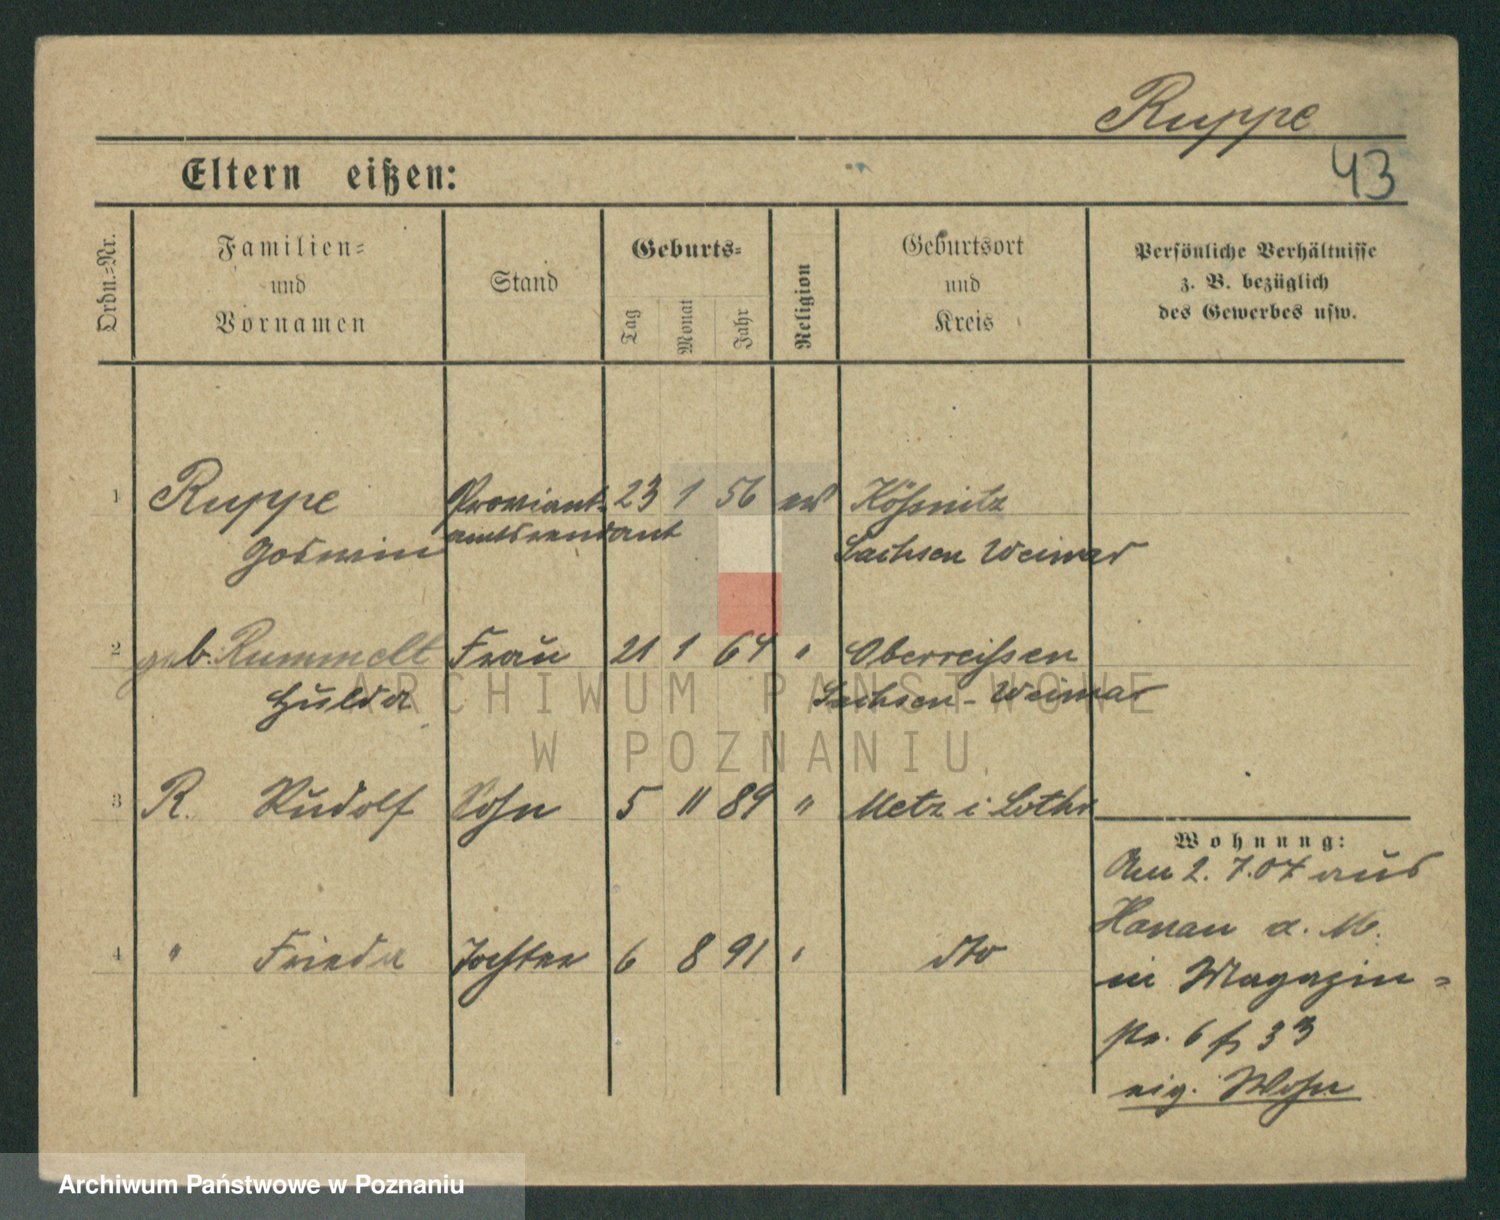 Ruppe
43
Eltern eißen:
Ordn.-Nr.
Familien-
und
Vornamen
Stand
Geburts-
Tag
Monat
Jahr
Religion
Geburtsort
und
Kreis
Persönliche Verhältnisse
z. B. bezüglich
des Gewerbes usw.
1 Ruppe Proviant- 23 1 56 ev Kößnitz
Goswin amtsrendant Sachsen Weimar
2 geb. Rummelt Frau 21 1 64 " Oberreißen
Hulda Sachsen-Weimar
3 R. Rudolf Sohn 5 11 89 " Metz i Lothr
4 " Frieda Tochter 6 8 91 " dto
Wohnung:
Am 2. 7.07 aus
Hanau a. M.
in Magazin-
str. 6 33
eig. Wohn
ARCHIWUM PAŃSTWOWE
W POZNANIU
Archiwum Państwowe w Poznaniu